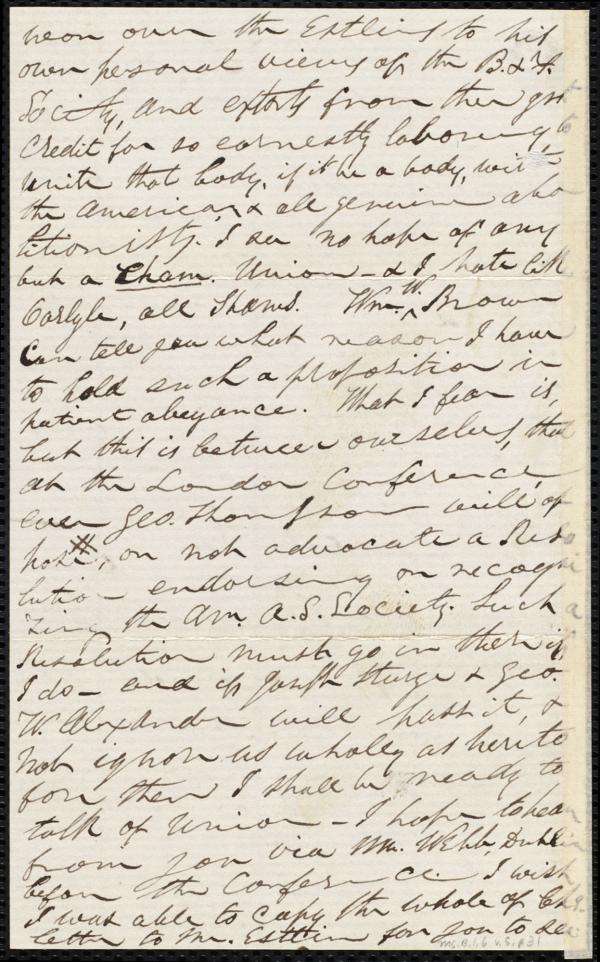 won over the Estlins to his
own personal views of the B. & F.
Society, and extorts from them grt
Credit for so earnestly laboring, to
unite that body, if it be a body, with
the American, & all genuine abo
litionists. I see no hope of any
but a Sham Union – & I hate like
Carlyle, all Shams. Wm. W. Brown
Can tell you what reason I have
to hold such a proposition in
patient abeyance. What I fear is,
but this is between ourselves, that
at the London Conference,
even Geo. Thompson will op
pose, or not advocate a Reso
lution endorsing or recogni
zing the Am. A. S. Society. Such a
Resolution must go in there if
I do – and if Joseph Sturge & Geo.
W. Alexander will pass it, &
not ignore us wholly as hereto
fore then I shall be ready to
talk of Union – I hope to hear
from you via Mr. Webb, Dublin
before the Conference. I wish
I was able to copy the whole of Ch's.
letter to Mr. Estlin for you to see
Ms. B.1.6 v.5, p.31